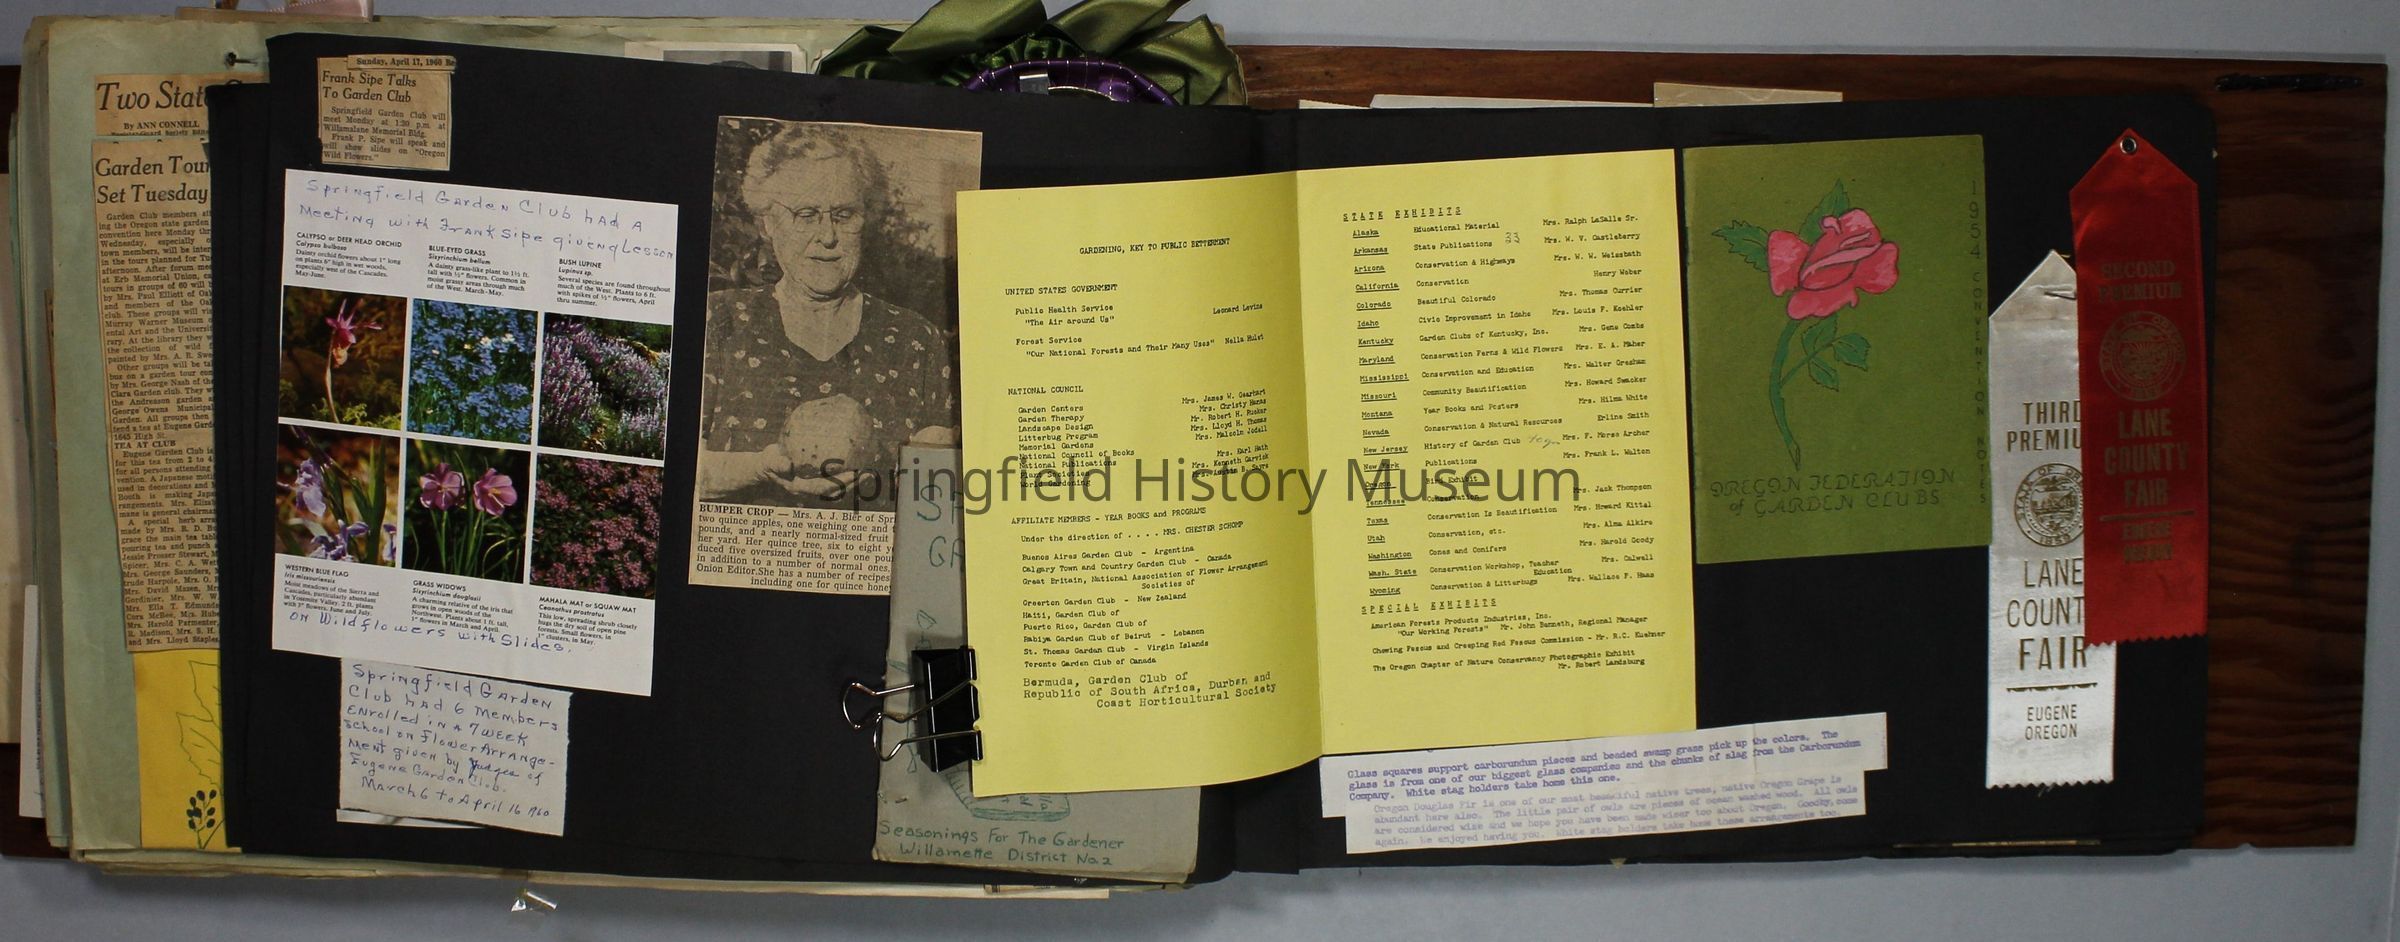 Two Stat
By ANN CONNELL
Garden Tour
Set Tuesday
Garden Club members
ing the Oregon state garden
convention here Monday
Wednesday, especially
town members, will be
in the tours planned for
afternoon. After forum
at Erb Memorial Union,
tours in groups of 60 will
by Mrs. Paul Elliott of
club. These groups will
Murray Warner Museum
ental Art and the
rary. At the library they
the collection of wild
painted by Mrs. A. R.
Other groups will be
bus on a garden tour
by Mrs. George Nash of the
Clara Garden club. They
the Andreason garden
George Owens Municipal
Garden. All groups then
tend a tea at Eugene
1645 High St.
TEA AT CLUB
Eugene Garden Club is
for this tea from 2 to 4
for all persons attending
vention. A Japanese
used in decorations and
Booth is making
rangements. Mrs.
mane is general chairman
A special herb
made by Mrs. R. D.
grace the main tea table
pouring tea and punch
Jessie Prosser Stewart,
Spicer, Mrs. C. A.
Mrs. George Saunders,
trude Harpole, Mrs. O.
Mrs. David Mazen,
Gordinier, Mrs. W. W.
Mrs. Ella T.
Cora McBee, Mrs.
Mrs. Harold Parmenter,
R. Madison, Mrs. S. H.
and Mrs. Lloyd Staples
Sunday, April 17, 1960
Frank Sipe Talks
To Garden Club
Springfield Garden Club will
meet Monday at 1:30 p.m. at
Willamalane Memorial Bldg.
Frank P. Sipe will speak and
will show slides on "Oregon
Wild Flowers."
Springfield Garden Club had A
Meeting with Frank Sipe giveng Lesson
CALYPSO or DEER HEAD ORCHID
Calypso bulbosa
Dainty orchid flowers about 1" long
on plants 6" high in wet woods,
especially west of the Cascades.
May-June.
BLUE-EYED GRASS
Sisyrinchium bellum
A dainty grass-like plant to 1½ ft.
tall with ½" flowers. Common in
moist grassy areas through much
of the West. March-May.
BUSH LUPINE
Lupinus sp.
Several species are found throughout
much of the West. Plants to 6 ft.
with spikes of ½" flowers, April
thru summer.
WESTERN BLUE FLAG
Iris missouriensis
Moist meadows of the Sierra and
Cascades, particularly abundant
in Yosemite Valley. 2 ft. plants
with 3" flowers. June and July.
GRASS WIDOWS
Sisyrinchium douglasii
A charming relative of the iris that
grows in open woods of the
Northwest. Plants about 1 ft. tall,
1" flowers in March and April.
MAHALA MAT or SQUAW MAT
Ceanothus prostratus
This low, spreading shrub closely
hugs the dry soil of open pine
forests. Small flowers, in
1" clusters, in May.
on Wildflowers with Slides.
Springfield Garden
Club had 6 members
Enrolled in A 7 week
School on Flower Arrange-
ment given by Judges of
Eugene Garden Club.
March 6 to April 16 1960
BUMPER CROP — Mrs. A. J. Bier of
two quince apples, one weighing one and
pounds, and a nearly normal-sized fruit
her yard. Her quince tree, six to eight
duced five oversized fruits, over one
in addition to a number of normal ones,
Onion Editor. She has a number of recipes
including one for quince honey
Seasonings For The Gardener
Willamette District No. 2
GARDENING, KEY TO PUBLIC BETTERMENT
UNITED STATES GOVERNMENT
Public Health Service
"The Air around Us" Leonard Levine
Forest Service
"Our National Forests and Their Many Uses" Nella Hulst
NATIONAL COUNCIL
Garden Centers Mrs. James W. Gearhart
Garden Therapy Mrs. Christy Hanas
Landscape Design Mr. Robert H. Rucker
Litterbug Program Mrs. Lloyd H. Thomas
Memorial Gardens Mrs. Malcolm Jodell
National Council of Books Mrs. Earl Hath
National Publications Mrs. Kenneth Garvick
Plant Societies
World Gardening
AFFILIATE MEMBERS - YEAR BOOKS and PROGRAMS
Under the direction of . . . . MRS. CHESTER SCHOMP
Buenos Aires Garden Club - Argentina
Calgary Town and Country Garden Club - Canada
Great Britain, National Association of Flower Arrangement
Societies of
Greerton Garden Club - New Zealand
Haiti, Garden Club of
Puerto Rico, Garden Club of
Rabiya Garden Club of Beirut - Lebanon
St. Thomas Garden Club - Virgin Islands
Toronto Garden Club of Canada
Bermuda, Garden Club of
Republic of South Africa, Durban and
Coast Horticultural Society
STATE EXHIBITS
Alaska Educational Material Mrs. Ralph LaSalle Sr.
Arkansas State Publications 33 Mrs. W. V. Castleberry
Arizona Conservation & Highways Mrs. W. W. Weissbath
California Conservation Henry Weber
Colorado Beautiful Colorado Mrs. Thomas Currier
Idaho Civic Improvement in Idaho Mrs. Louis F. Koehler
Kentucky Garden Clubs of Kentucky, Inc. Mrs. Gene Combs
Maryland Conservation Ferns & Wild Flowers Mrs. E. A. Maher
Mississippi Conservation and Education Mrs. Walter Gresham
Missouri Community Beautification Mrs. Howard Swacker
Montana Year Books and Posters Mrs. Hilma White
Nevada Conservation & Natural Resources Erline Smith
New Jersey History of Garden Club Mrs. F. Morse Archer
New York Publications Mrs. Frank L. Walton
Oregon Bird Exhibit
Tennessee Conservation Mrs. Jack Thompson
Texas Conservation Is Beautification Mrs. Howard Kittel
Utah Conservation, etc. Mrs. Alma Alkire
Washington Cones and Conifers Mrs. Harold Goody
Wash. State Conservation Workshop, Teacher Education Mrs. Calwell
Wyoming Conservation & Litterbugs Mrs. Wallace F. Haas
SPECIAL EXHIBITS
American Forests Products Industries, Inc.
"Our Working Forests" Mr. John Benneth, Regional Manager
Chewing Fescue and Creeping Red Fescue Commission - Mr. R.C. Kuehner
The Oregon Chapter of Nature Conservancy Photographic Exhibit
Mr. Robert Landsburg
1954 CONVENTION NOTES
OREGON FEDERATION
of GARDEN CLUBS
Glass squares support carborundum pieces and beaded swamp grass pick up the colors. The
glass is from one of our biggest glass companies and the chunks of slag from the Carborundum
Company. White stag holders take home this one.
Oregon Douglas Fir is one of our most beautiful native trees, native Oregon Grape is
abundant here also. The little pair of owls are pieces of ocean washed wood. All owls
are considered wise and we hope you have been made wiser too about Oregon. Goodby, come
again. We enjoyed having you. White stag holders take home these arrangements too.
THIRD
PREMIU
STATE OF OREGON
1859
LANE
COUNT
FAIR
EUGENE
OREGON
SECOND
PREMIUM
LANE
COUNTY
FAIR
EUGENE
OREGON
Springfield History Museum